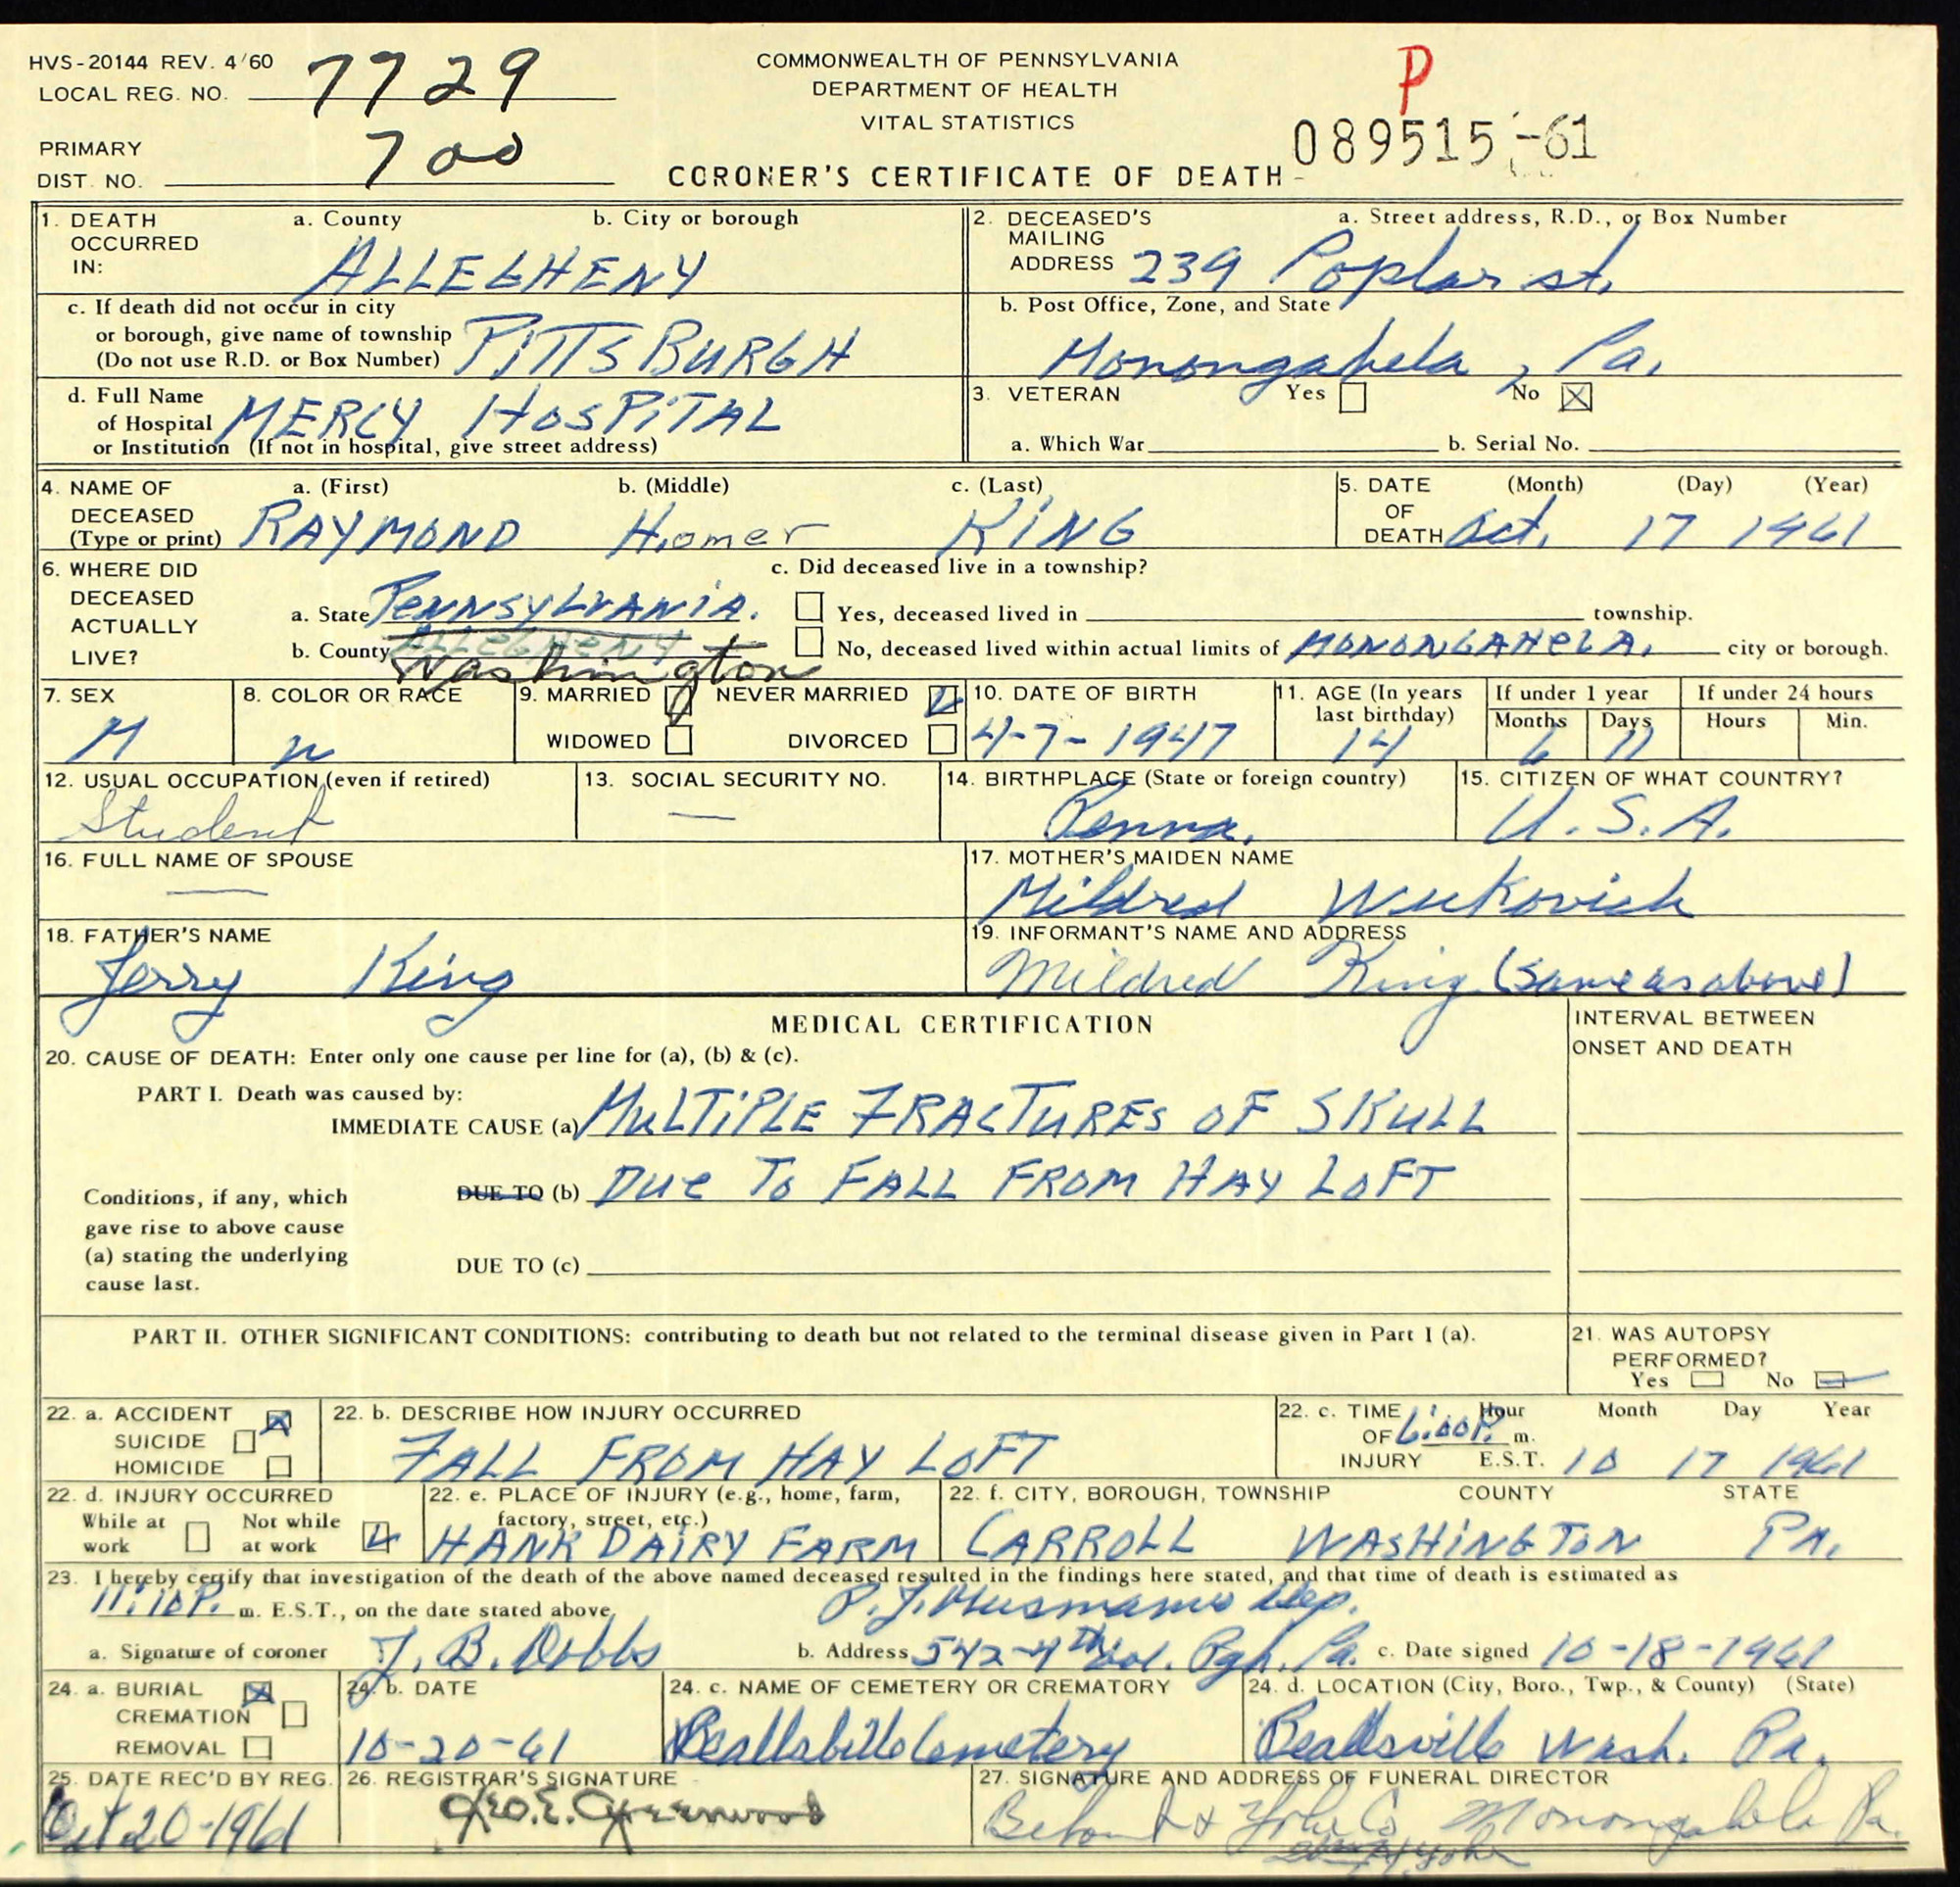 HVS-20144 REV. 4/60
LOCAL REG. NO. 7729
COMMONWEALTH OF PENNSYLVANIA
DEPARTMENT OF HEALTH
VITAL STATISTICS
P
PRIMARY
DIST. NO. 700
089515-61
CORONER'S CERTIFICATE OF DEATH
1. DEATH OCCURRED IN: a. County b. City or borough
ALLEGHENY
c. If death did not occur in city
or borough, give name of township
(Do not use R.D. or Box Number) PITTSBURGH
d. Full Name
of Hospital MERCY HOSPITAL
or Institution (If not in hospital, give street address)
2. DECEASED'S MAILING ADDRESS a. Street address, R.D., or Box Number
239 Poplar st.
b. Post Office, Zone, and State
Monongahela, Pa.
3. VETERAN Yes No
a. Which War b. Serial No.
4. NAME OF DECEASED (Type or print) a. (First) b. (Middle) c. (Last)
RAYMOND Homer KING
5. DATE OF DEATH (Month) (Day) (Year)
Oct. 17 1961
6. WHERE DID DECEASED ACTUALLY LIVE?
a. State PENNSYLVANIA.
b. County ALLEGHENY
Washington
c. Did deceased live in a township?
Yes, deceased lived in township.
No, deceased lived within actual limits of MONONGAHELA. city or borough.
7. SEX
M
8. COLOR OR RACE
W
9. MARRIED NEVER MARRIED
WIDOWED DIVORCED
10. DATE OF BIRTH
4-7-1947
11. AGE (In years last birthday)
14
If under 1 year
Months Days
6 11
If under 24 hours
Hours Min.
12. USUAL OCCUPATION (even if retired)
Student
13. SOCIAL SECURITY NO.
—
14. BIRTHPLACE (State or foreign country)
Penna.
15. CITIZEN OF WHAT COUNTRY?
U.S.A.
16. FULL NAME OF SPOUSE
—
17. MOTHER'S MAIDEN NAME
Mildred Wukovich
18. FATHER'S NAME
Jerry King
19. INFORMANT'S NAME AND ADDRESS
Mildred King (same as above)
MEDICAL CERTIFICATION
INTERVAL BETWEEN
ONSET AND DEATH
20. CAUSE OF DEATH: Enter only one cause per line for (a), (b) & (c).
PART I. Death was caused by:
IMMEDIATE CAUSE (a) MULTIPLE FRACTURES OF SKULL
Conditions, if any, which
gave rise to above cause
(a) stating the underlying
cause last.
DUE TO (b) DUE TO FALL FROM HAY LOFT
DUE TO (c)
PART II. OTHER SIGNIFICANT CONDITIONS: contributing to death but not related to the terminal disease given in Part 1 (a).
21. WAS AUTOPSY
PERFORMED?
Yes No
22. a. ACCIDENT
SUICIDE
HOMICIDE
22. b. DESCRIBE HOW INJURY OCCURRED
FALL FROM HAY LOFT
22. c. TIME OF INJURY Hour Month Day Year
6:00 P. m.
E.S.T. 10 17 1961
22. d. INJURY OCCURRED
While at work Not while at work
22. e. PLACE OF INJURY (e.g., home, farm,
factory, street, etc.)
HANK DAIRY FARM
22. f. CITY, BOROUGH, TOWNSHIP COUNTY STATE
CARROLL WASHINGTON PA.
23. I hereby certify that investigation of the death of the above named deceased resulted in the findings here stated, and that time of death is estimated as
11:10 P. m. E.S.T., on the date stated above.
Dep.
a. Signature of coroner
b. Address 542-4th Pgh. Pa. c. Date signed 10-18-1961
24. a. BURIAL
CREMATION
REMOVAL
24. b. DATE
10-20-61
24. c. NAME OF CEMETERY OR CREMATORY
Beallsville Cemetery
24. d. LOCATION (City, Boro., Twp., & County) (State)
Beallsville Wash. Pa.
25. DATE REC'D BY REG.
Oct 20-1961
26. REGISTRAR'S SIGNATURE
Geo. E. Greenwood
27. SIGNATURE AND ADDRESS OF FUNERAL DIRECTOR
Monongahela Pa.